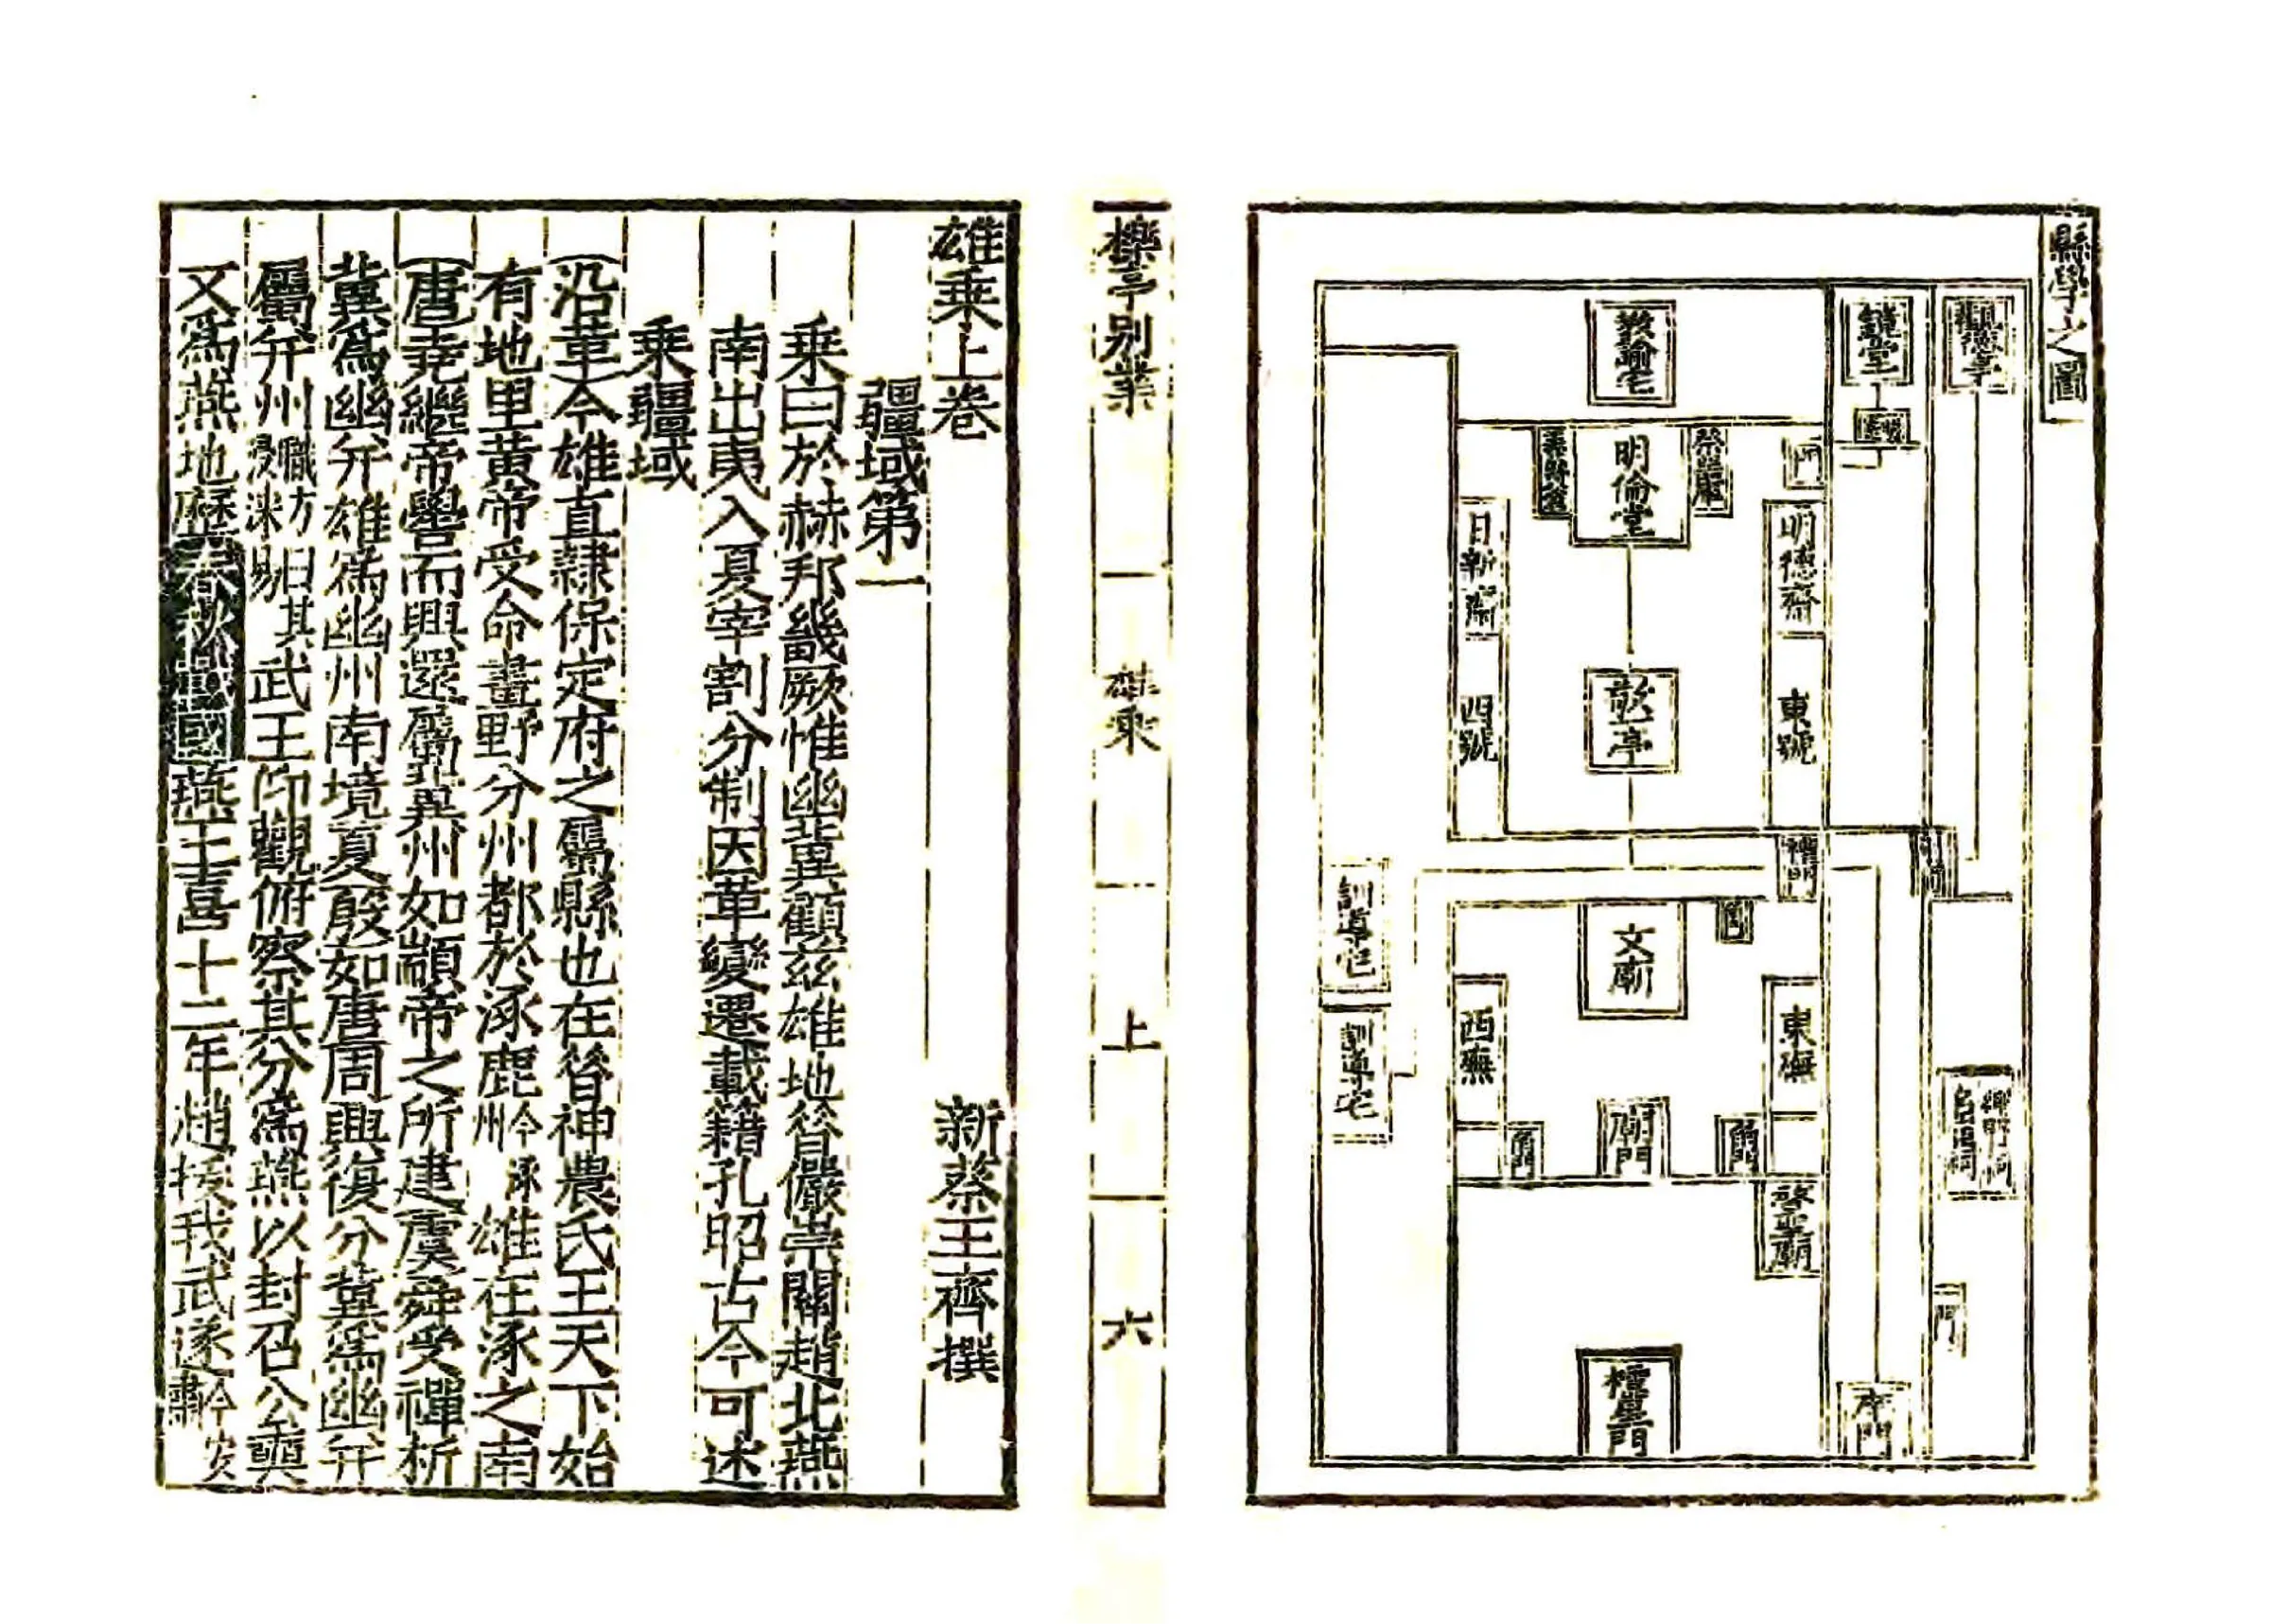 縣學之圖
觀德亭
饌堂
教諭宅
明倫堂
祭器庫
門
明德齋
日新齋
東號
四號
敬一亭
禮門
訓導宅
訓導宅
文廟
角門
東廡
西廡
鄉賢祠
名宦祠
廟門
角門
角門
啓聖廟
門
欞星門
學門
櫟亭别業
雄乘
上
六
雄乘上卷
新蔡王齊撰
疆域第一
乘曰於赫邦畿厥惟幽冀顧兹雄地昝儼崇關趙北燕
南出夷入夏宰割分制因革變遷載籍孔昭古今可述
乘疆域
沿革今雄直隸保定府之屬縣也在昝神農氏王天下始
有地里黄帝受命畫野分州都於涿鹿今涿州雄在涿之南
唐堯繼帝嚳而興還屬冀州如顓帝之所建虞舜受禪析
冀為幽并雄為幽州南境夏殷如唐周興復分冀為幽并
屬并州職方曰其浸淶易武王仰觀俯察其分為燕以封召公奭
又為燕地歴春秋戰國燕王喜十二年趙援我武遂今安肅